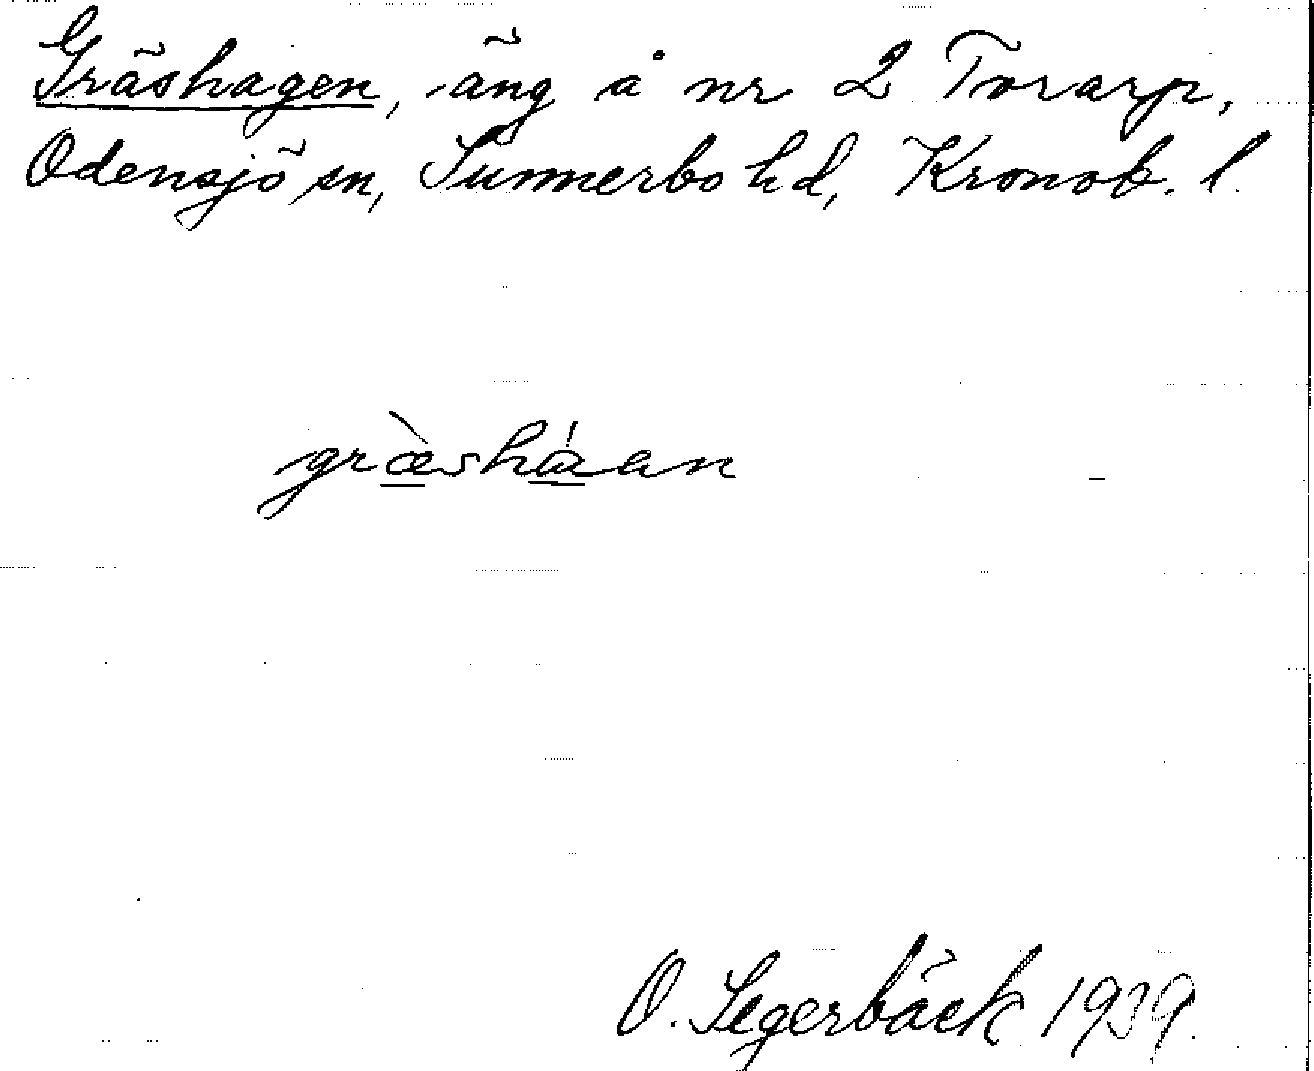 Gräshagen, äng å nr 2 Torarp,
Odensjö sn, Sunnerbo hd, Kronob. l.
græ̀sháan
O. Segerbäck 1939.